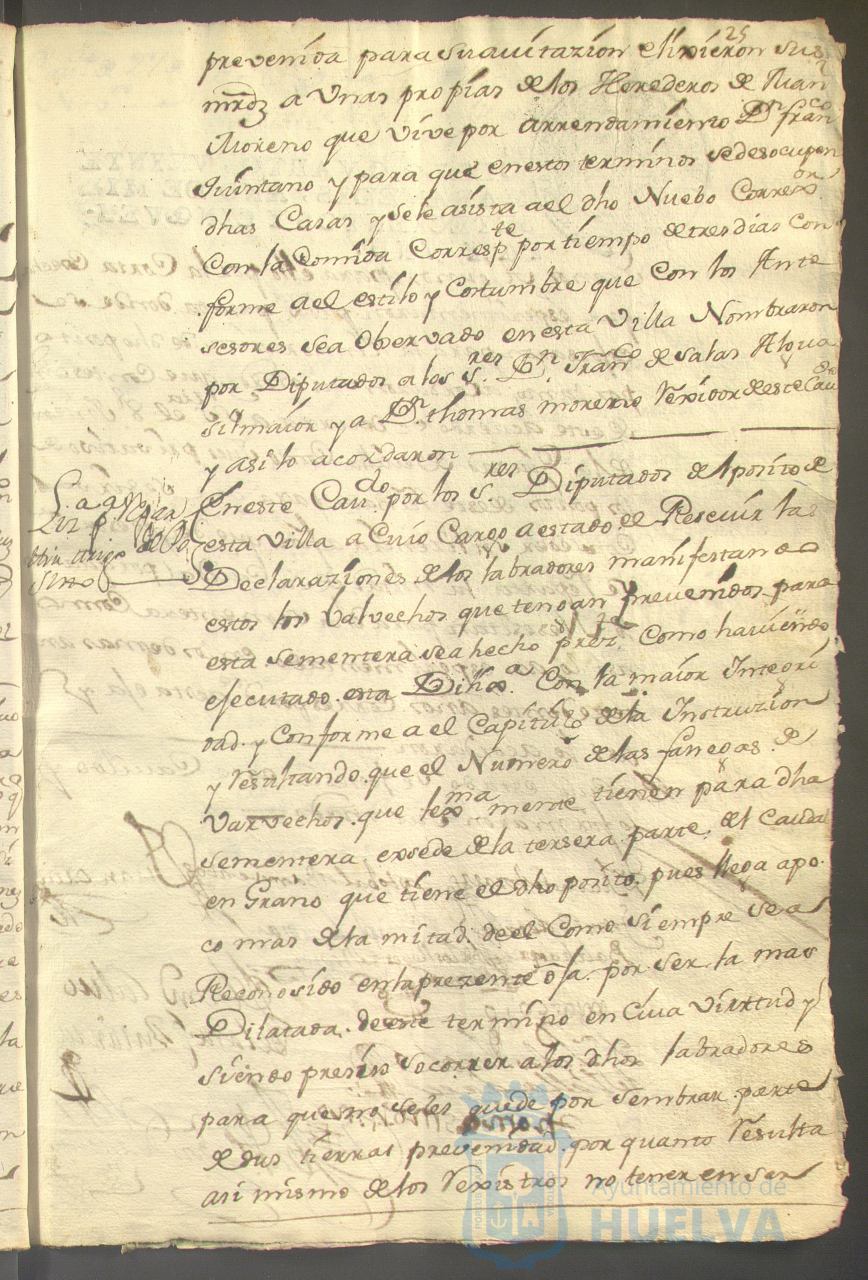 25
prevenida para su avitazion elixieron sus
mrdz a Unas propias de los Herederos de Juan
Moreno que vive por arrendamiento Dn franco
quintano y para que en estos terminos se desocupen
dhas Casas y se le asista a el dho Nuebo Correxor
Con la Comida Correspte por tiempo de tres dias Con
forme a el estilo y Costumbre que Con los Ante
sesores sea Observado en esta Villa Nombraron
por Diputados a los Sres Dn Franco de Salas Algua
sil maior y a Dn thomas moreno Rexidor de este Cavdo
y asi lo acordaron
En este Cavdo por los Sres Diputados del posito de
esta Villa a Cuio Cargo a estado el Resevir las
Declaraziones de los labradores manifestando
estos los Valvechos que tengan prevenidos para
esta sementera sea hecho preste Como haviendo
ejecutado esta Diliga Con la maior Integri
dad y Conforme a el Capitulo de la Instruzion
y Resultando que el Numero de las fanegas de
Varvechos que legmamente tienen para dha
sementera exsede de la tersera parte del Caudal
en Grano que tiene el dho posito pues llega a po
co mas de la mitad de el Como siempre se a
Reconosido en la prezente oja por ser la mas
Dilatada de este termino en Cuia Virtud y
siendo presiso socorrer a los dhos labradores
para que no se les quede por sembrar parte
de sus tierras prevenidas por quanto Resulta
asi mismo de los Rexistros no tener en ser
Ayuntamiento de
HUELVA